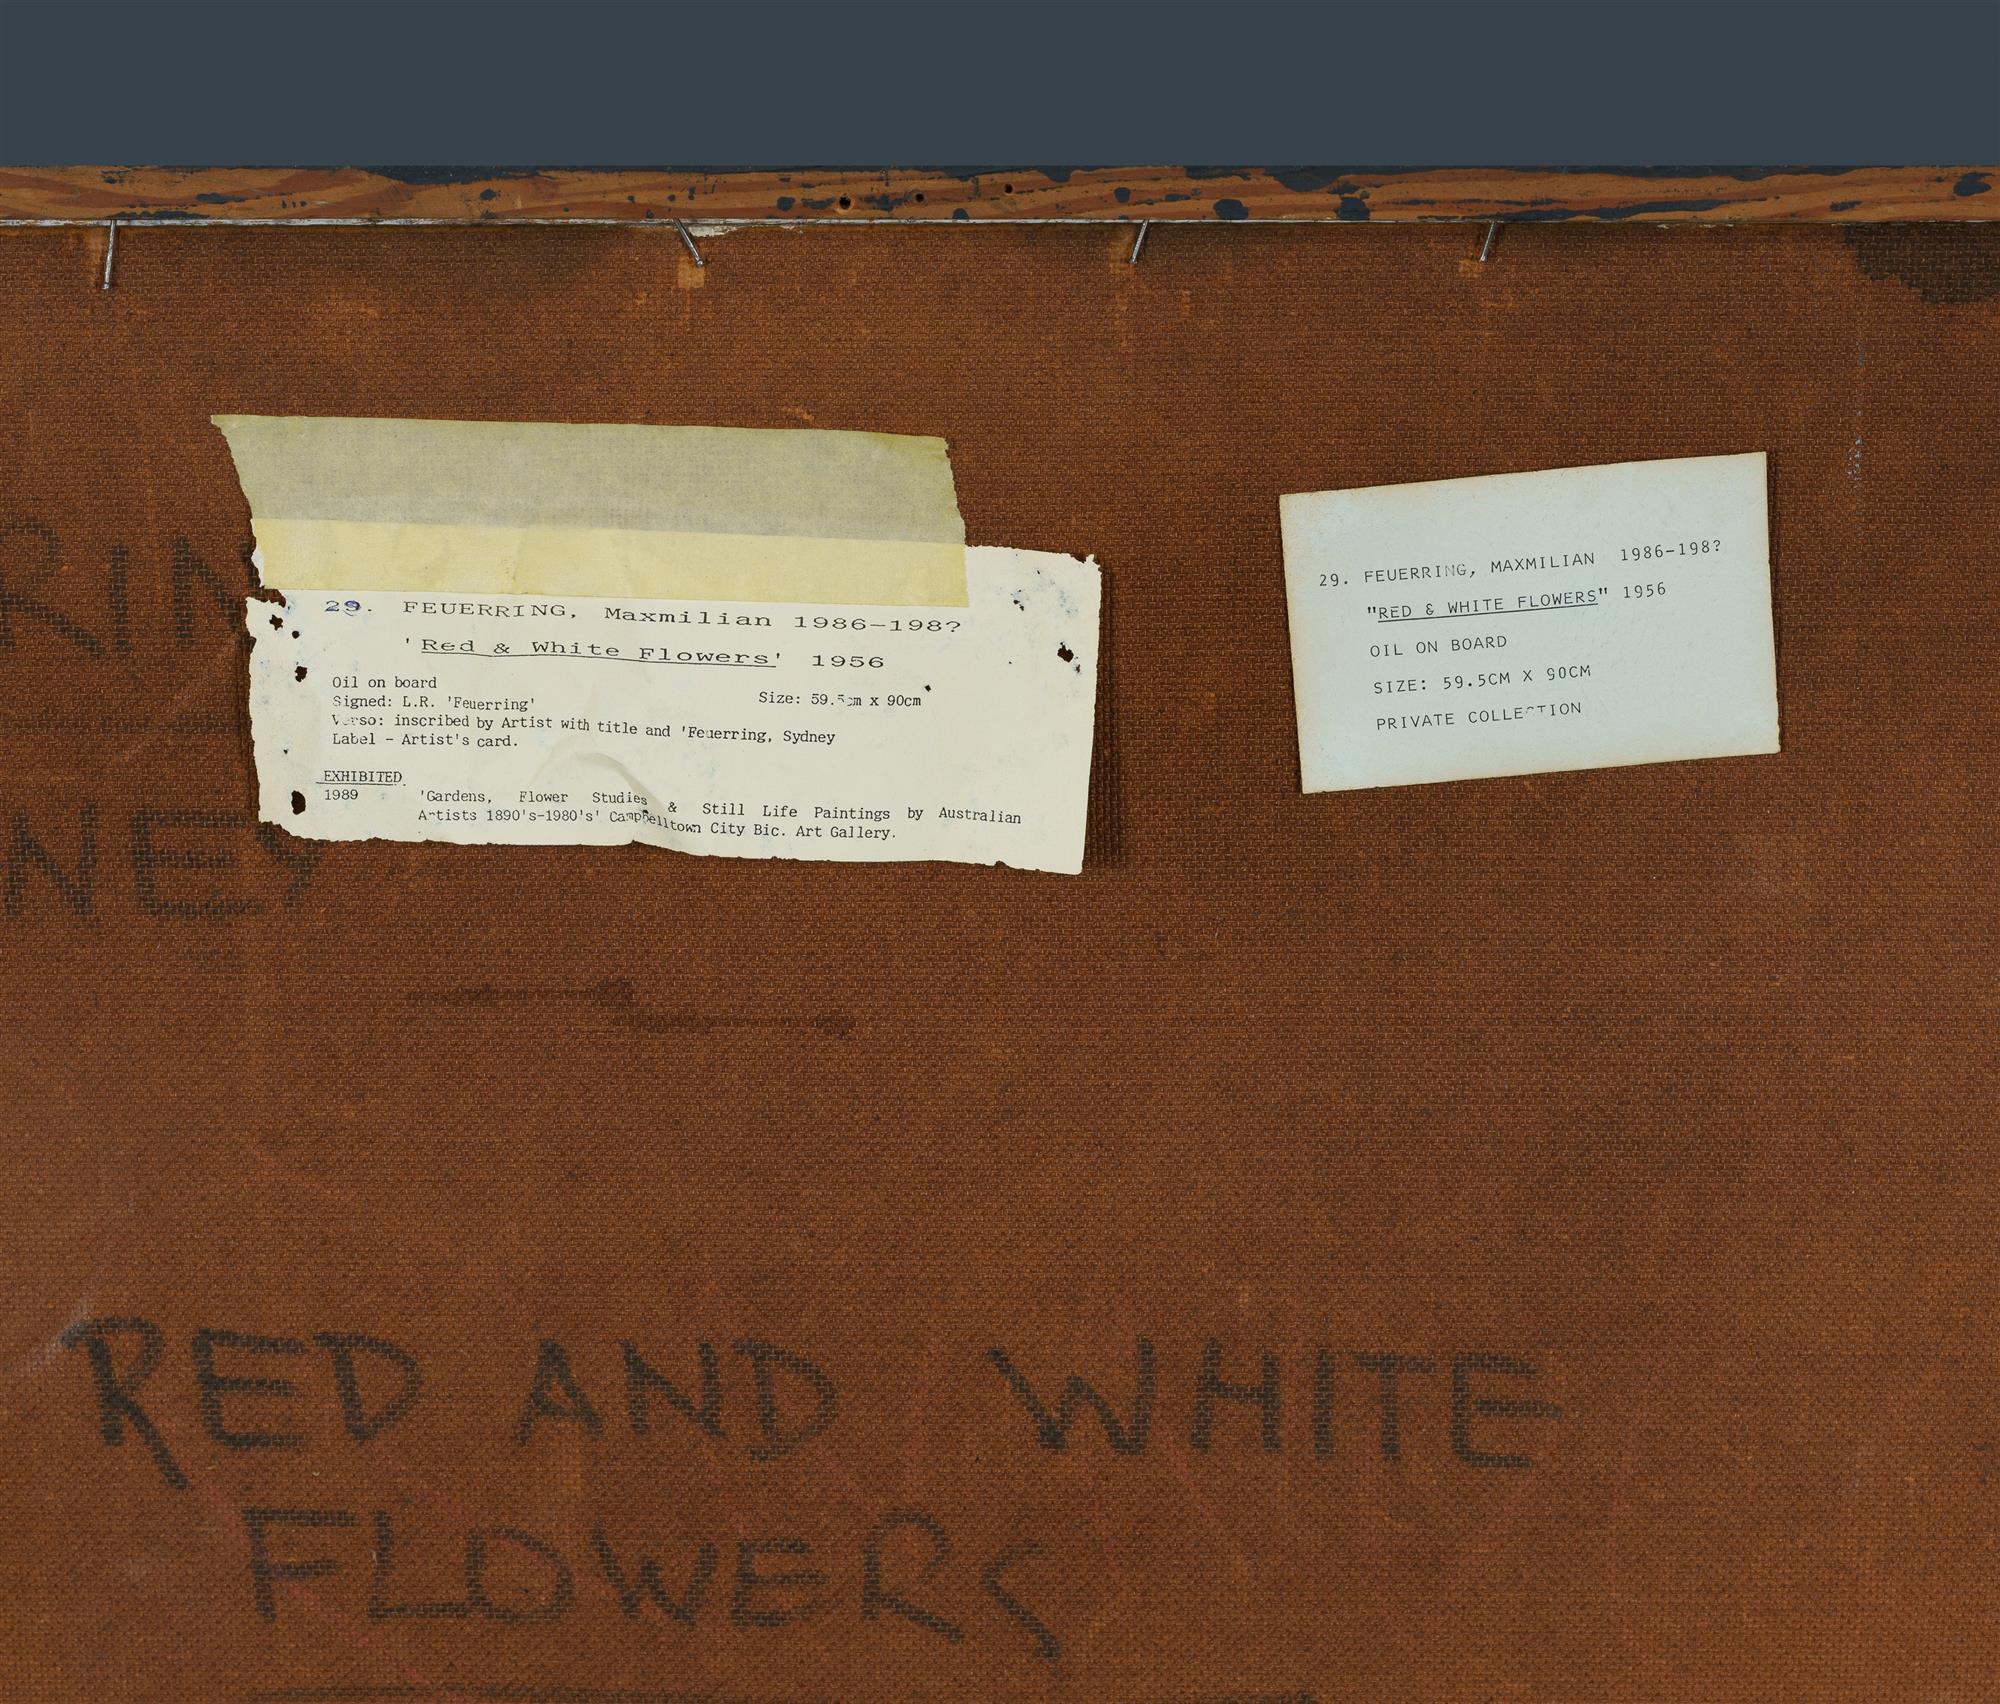 RIN
NEY
29. FEUERRING, Maxmilian 1986-198?
'Red & White Flowers' 1956
Oil on board
Signed: L.R. 'Feuerring' Size: 59.5cm x 90cm
Verso: inscribed by Artist with title and 'Feuerring, Sydney
Label - Artist's card.
EXHIBITED
1989 'Gardens, Flower Studies & Still Life Paintings by Australian
Artists 1890's-1980's' Campbelltown City Bic. Art Gallery.
29. FEUERRING, MAXMILIAN 1986-198?
"RED & WHITE FLOWERS" 1956
OIL ON BOARD
SIZE: 59.5CM X 90CM
PRIVATE COLLECTION
RED AND WHITE
FLOWERS